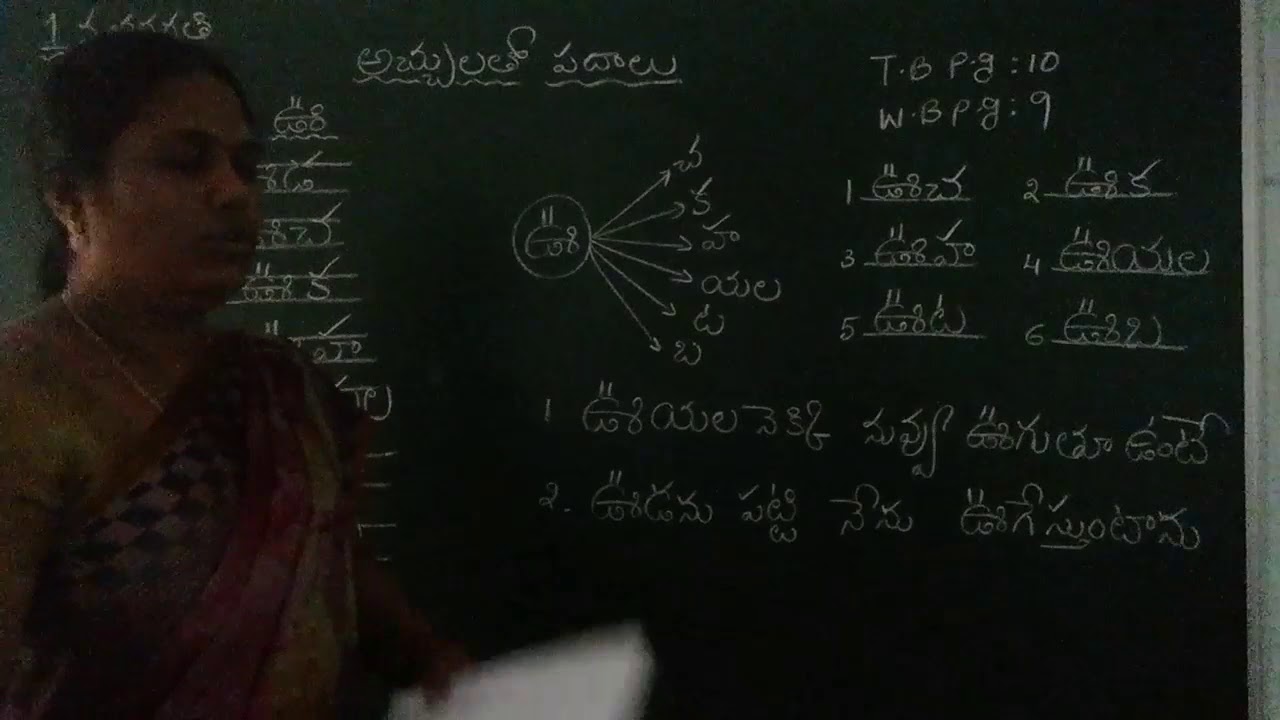 1
అచ్చులతో పదాలు
T.B P.g : 10
W.B P.g : 9
ఊ
ఊక
ఊ
చ
క
హ
యల
ట
బ
1 ఊచ 2 ఊక
3 ఊహ 4 ఊయల
5 ఊట 6 ఊబ
1 ఊయలనెక్కి నువ్వు ఊగుతూ ఉంటే
2. ఊడను పట్టి నేను ఊగేస్తుంటాను